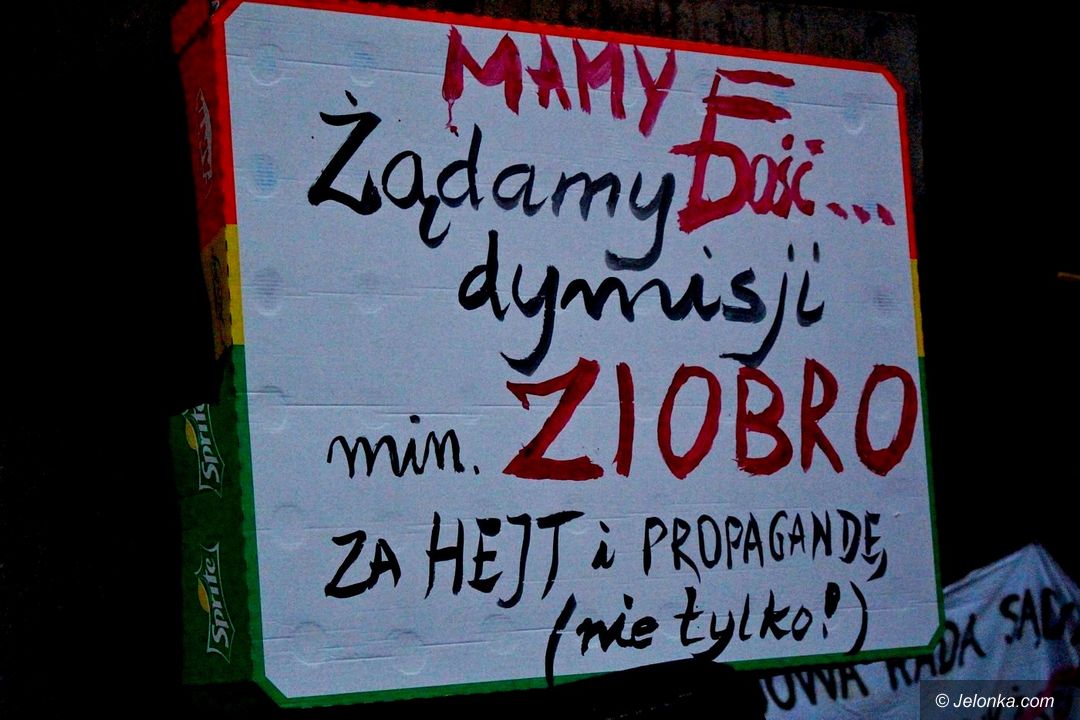 MAMY
Dość...
Żądamy
dymisji
min. ZIOBRO
ZA HEJT i PROPAGANDĘ
(nie tylko!)
Sprite
Sprite
RADA
© Jelonka.com